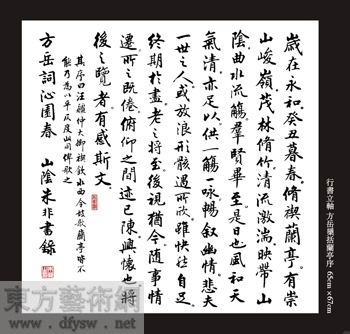 歲在永和癸丑暮春脩禊蘭亭有崇
山峻嶺茂林脩竹清流激湍映帶山
陰曲水流觴羣賢畢至是日也風和天
氣清亦足以供一觴一咏暢叙幽情悲夫
一世之人或放浪形骸遇所欣雖快然自足
終期於盡老之將至後視猶今隨事情
遷所之既倦俯仰之間迹已陳興懷也將
後之覽者有感斯文
其序曰汪彊仲大卿禊飲水西令妓歌蘭亭皆不
能乃為以平仄度此曲俾歌之
方岳詞沁園春 山陰朱非書錄
行書立軸 方岳櫽括蘭亭序 65cm×67cm
東方藝術網
www.dfysw.net